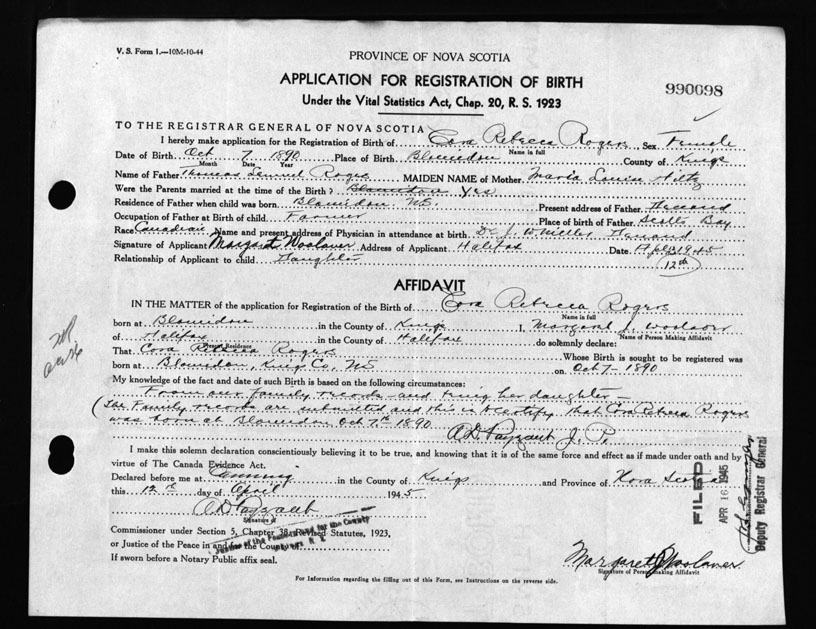 V. S. Form 1.—10M-10-44
PROVINCE OF NOVA SCOTIA
APPLICATION FOR REGISTRATION OF BIRTH
990098
Under the Vital Statistics Act, Chap. 20, R. S. 1923
TO THE REGISTRAR GENERAL OF NOVA SCOTIA
I hereby make application for the Registration of Birth of Cora Rebecca Rogers Sex Female
Name in full
Date of Birth Oct 7 1890 Place of Birth Blomidon County of Kings
Month Date Year
Name of Father Thomas Lemuel Rogers MAIDEN NAME of Mother Maria Louise Hiltz
Were the Parents married at the time of the Birth? Blomidon Yes
Residence of Father when child was born Blomidon N.S. Present address of Father Deceased
Occupation of Father at Birth of child Farmer Place of birth of Father Scotts Bay
Race Canadian Name and present address of Physician in attendance at birth Dr J. W Miller Deceased
Signature of Applicant Margaret Woolaver Address of Applicant Halifax Date Apl 1945
12th
Relationship of Applicant to child Daughter
AFFIDAVIT
IN THE MATTER of the application for Registration of the Birth of Cora Rebecca Rogers
Name in full
born at Blomidon in the County of Kings I, Margaret J. Woolaver
Name of Person Making Affidavit
of Halifax in the County of Halifax do solemnly declare:
Present Residence
That Cora Rebecca Rogers Whose Birth is sought to be registered was
born at Blomidon, Kings Co, NS on Oct 7- 1890
My knowledge of the fact and date of such Birth is based on the following circumstances:
From our family records - and being her daughter -
(The Family records are submitted and this is to certify that Cora Rebecca Rogers
was born at Blomidon Oct 7th 1890
A D Payzant J. P.
I make this solemn declaration conscientiously believing it to be true, and knowing that it is of the same force and effect as if made under oath and by
virtue of The Canada Evidence Act.
Declared before me at Canning in the County of Kings and Province of Nova Scotia
this 12th day of April 1945
A D Payzant
Signature of
Commissioner under Section 5, Chapter 38, Revised Statutes, 1923,
or Justice of the Peace in and for the County of
Justice of the Peace in and for the County
If sworn before a Notary Public affix seal.
FILED
APR 16 1945
Deputy Registrar General
Margaret J Woolaver
Signature of Person Making Affidavit
For Information regarding the filling out of this Form, see Instructions on the reverse side.